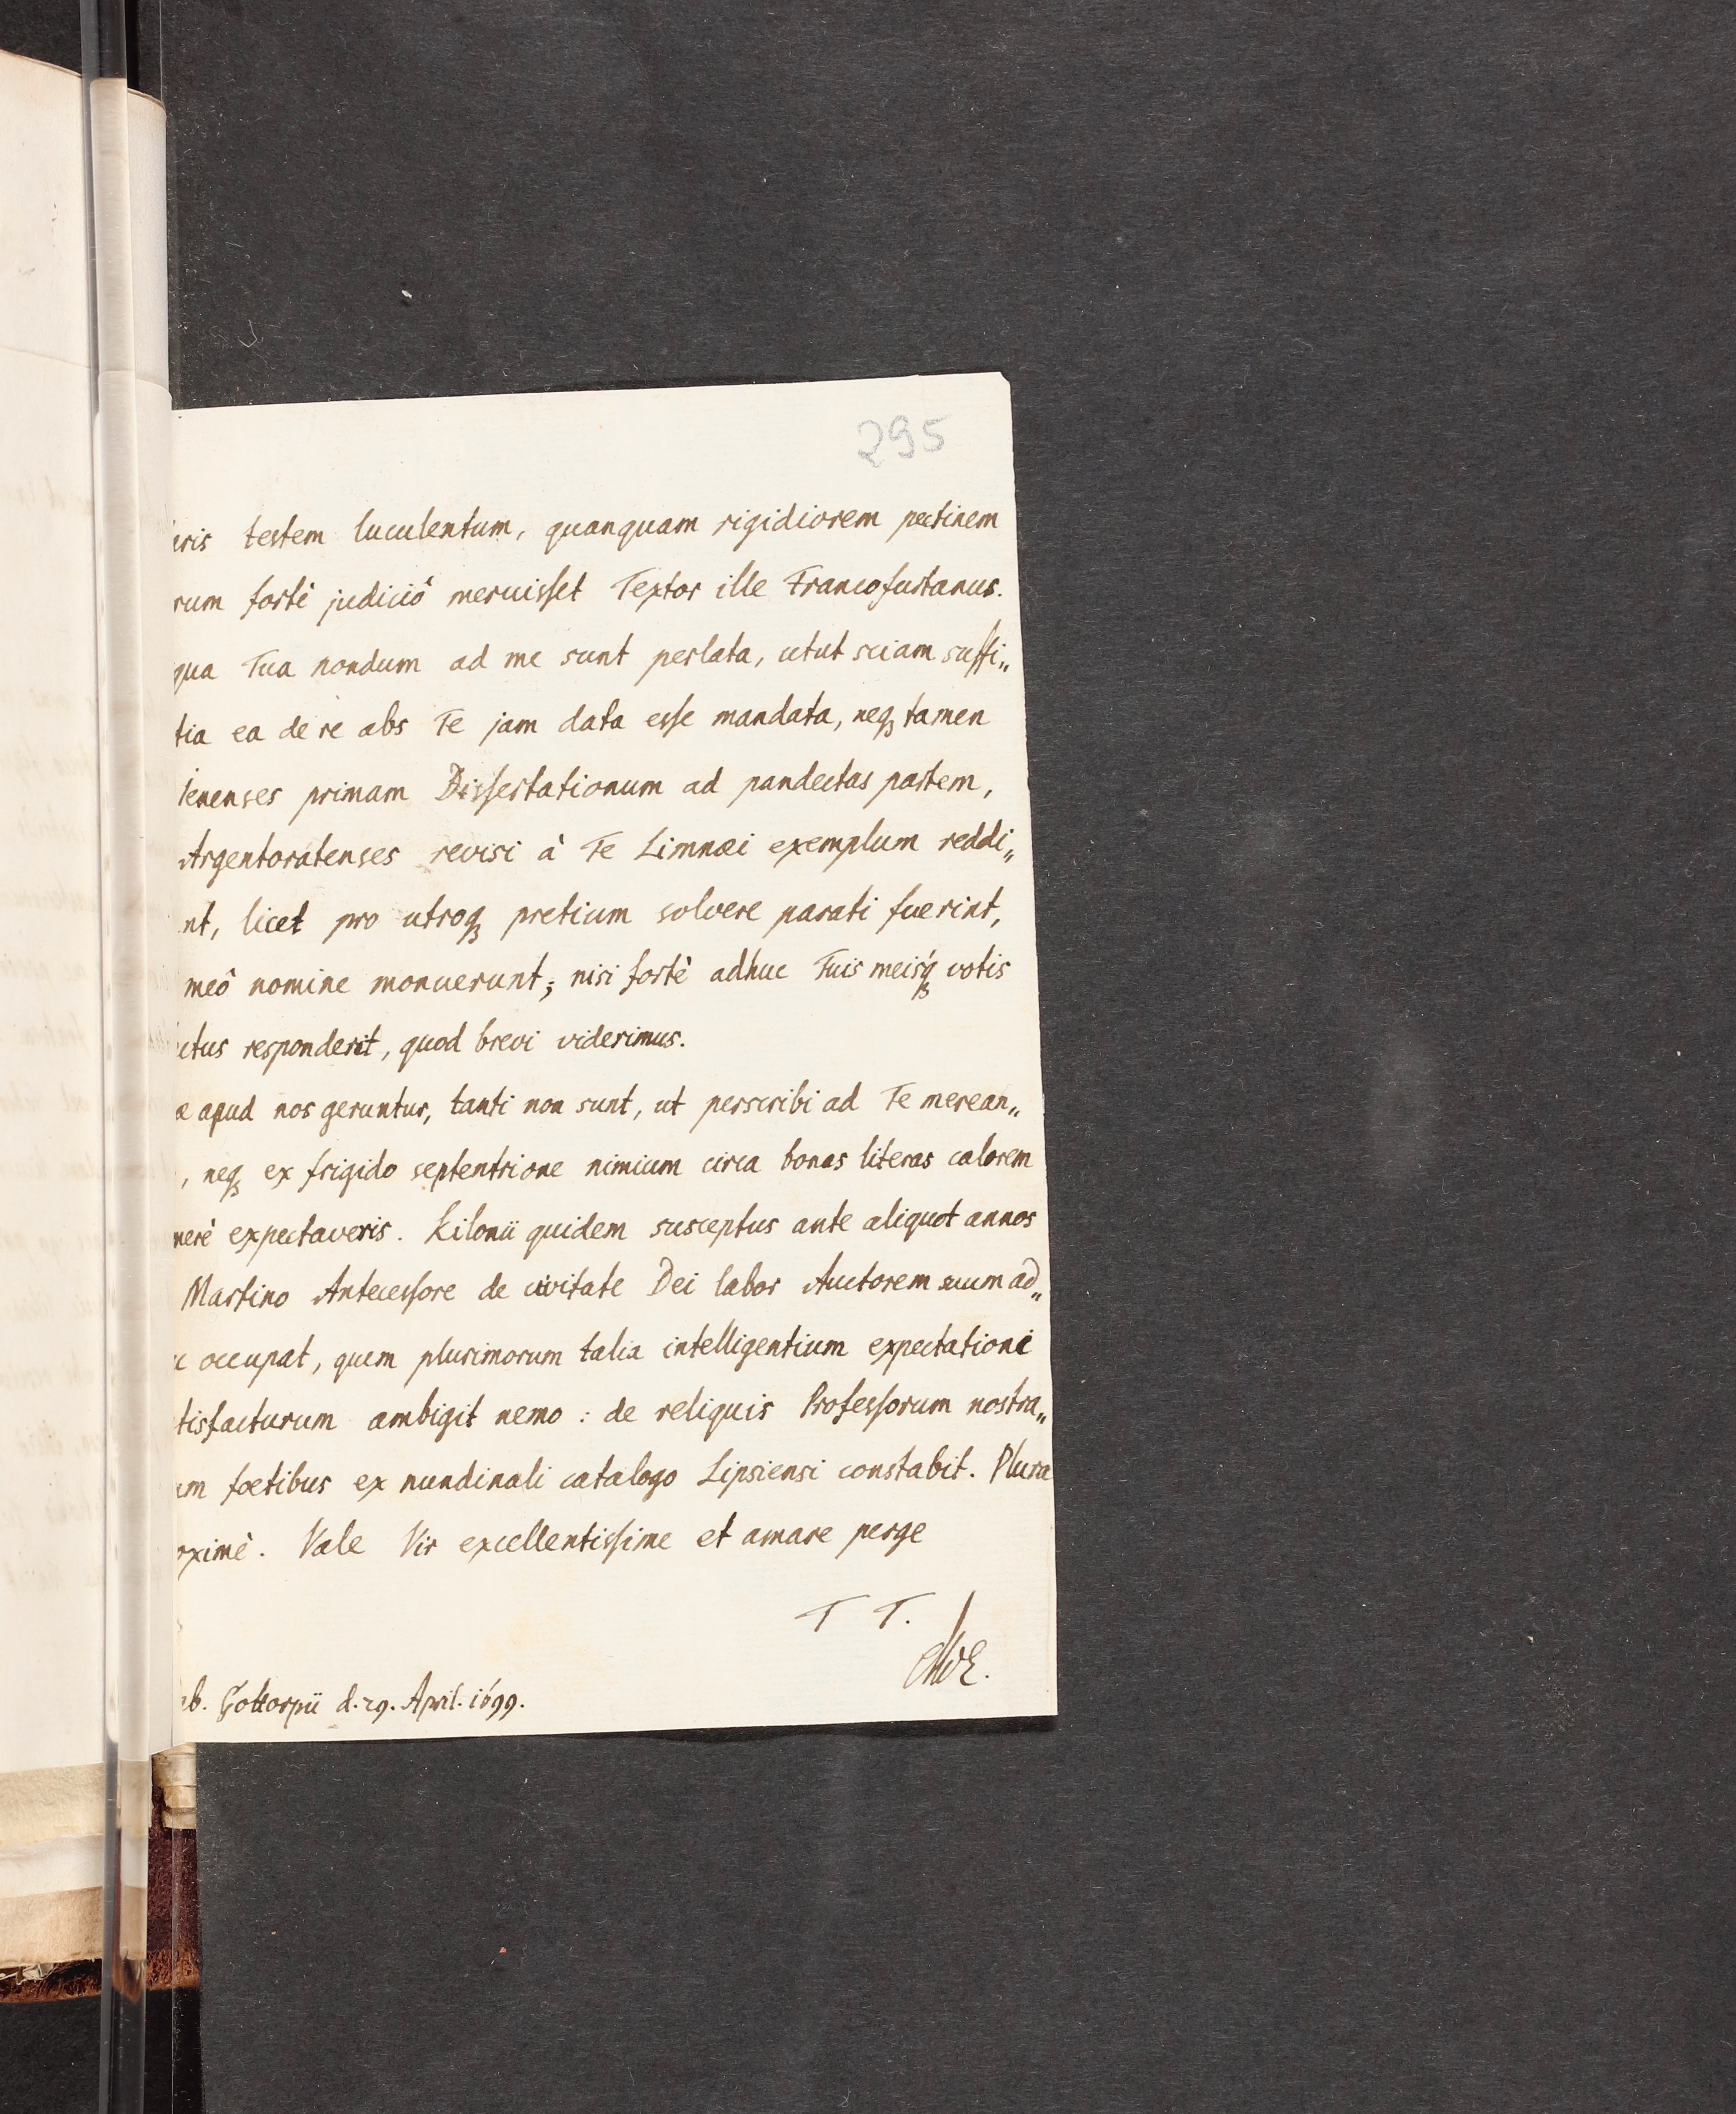 295
uris testem luculentum, quanquam rigidiorem pectinem
rum fortè judiciô meruisset Textor ille Francofurtanus.
qua Tua nondum ad me sunt perlata, utut sciam suffi„
tia ea de re abs Te jam data esse mandata, neqꝫ tamen
Ienenses primam Dissertationum ad pandectas partem,
Argentoratenses revisi à Te Limnæi exemplum reddi„
nt, licet pro utroqꝫ pretium solvere parati fuerint,
meô nomine monuerunt; nisi fortè adhuc Tuis meisqꝫ votis
utus responderit, quod brevi viderimus.
æ apud nos geruntur, tanti non sunt, ut perscribi ad Te merean„
, neqꝫ ex frigido septentrione nimium circa bonas literas calorem
merè expectaveris. Kilonii quidem susceptus ante aliquot annos
Martino Antecessore de civitate Dei labor Auctorem suum ad„
c occupat, quem plurimorum talia intelligentium expectationi
tisfacturum ambigit nemo: de reliquis Professorum nostra„
um foetibus ex nundinali catalogo Lipsiensi constabit. Plura
oximè. Vale Vir excellentissime et amare perge
T T.
ab. Gottorpii d. 29. April. 1699.